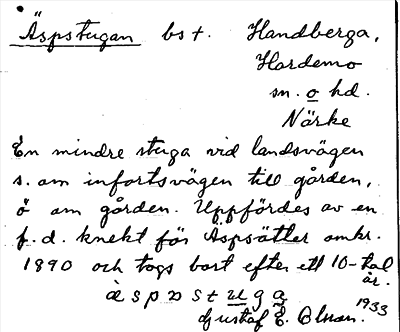 Äspstugan bst. Handberga,
Hardemo
sn. o hd.
Närke
En mindre stuga vid landsvägen
s. om infartsvägen till gården,
ö om gården. Uppfördes av en
f.d. knekt för Äspsätter omkr.
1890 och togs bort efter ett 10-tal
år.
Gustaf E. Olsson. 1933